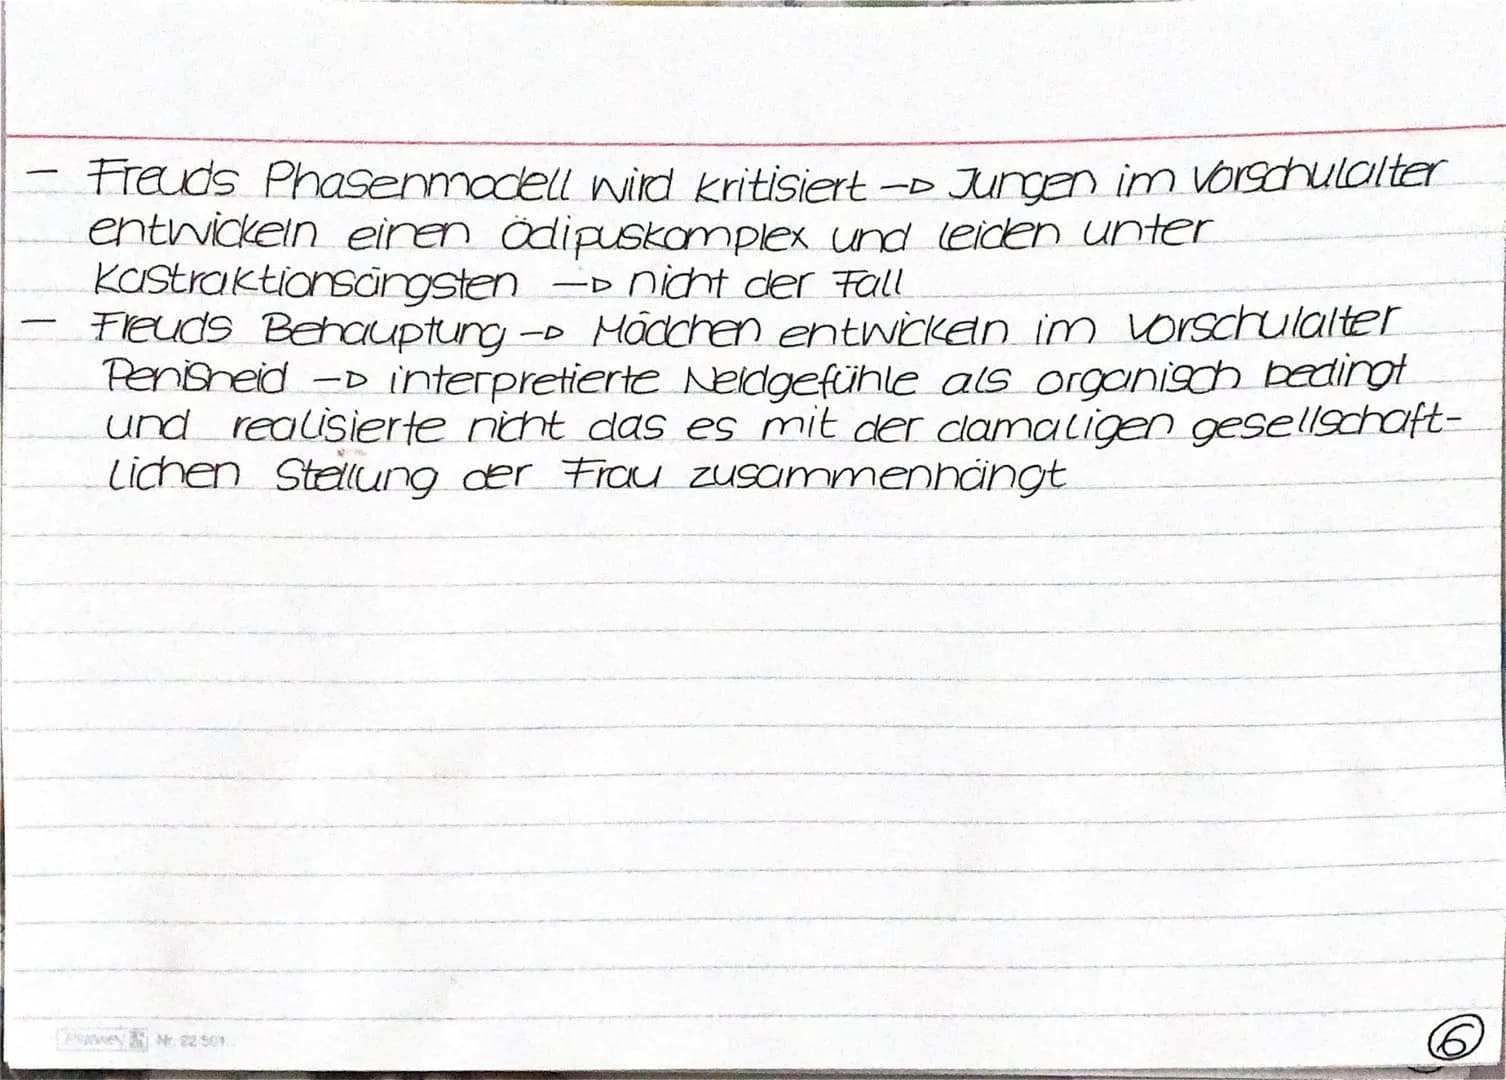 - Freuds Phasenmodell wird kritisiert -> Jungen im Vorschulalter
entwickeln einen Ödipuskomplex und leiden unter
Kastraktionsängsten -> nicht der Fall
- Freuds Behauptung -> Mädchen entwickeln im Vorschulalter
Penisneid -> interpretierte Neidgefühle als organisch bedingt
und realisierte nicht das es mit der damaligen gesellschaft-
lichen Stellung der Frau zusammenhängt
Nr. 22 501
6